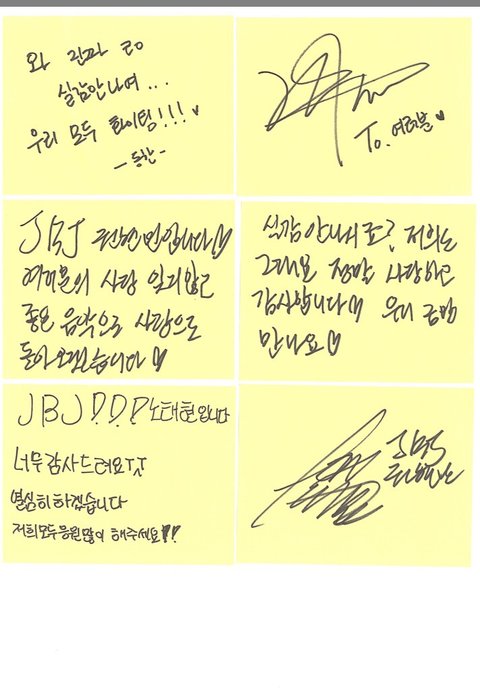 와 진짜 ㄹㅇ
실감안나여...
우리 모두 화이팅!!!♥
-동한-
To. 여러분♥
JBJ 권현빈입니다♡
여러분의 사랑 잊지않고
좋은 음악으로 사랑으로
돌아오겠습니다♡
실감 안나시죠? 저희는
그대로 정말 사랑하고
감사합니다♡ 우리 금방
만나요♡
JBJ!!! 노태현입니다
너무감사드려요ㅠㅠ
열심히하겠습니다
저희모두응원많이 해주세요!!
JBJ